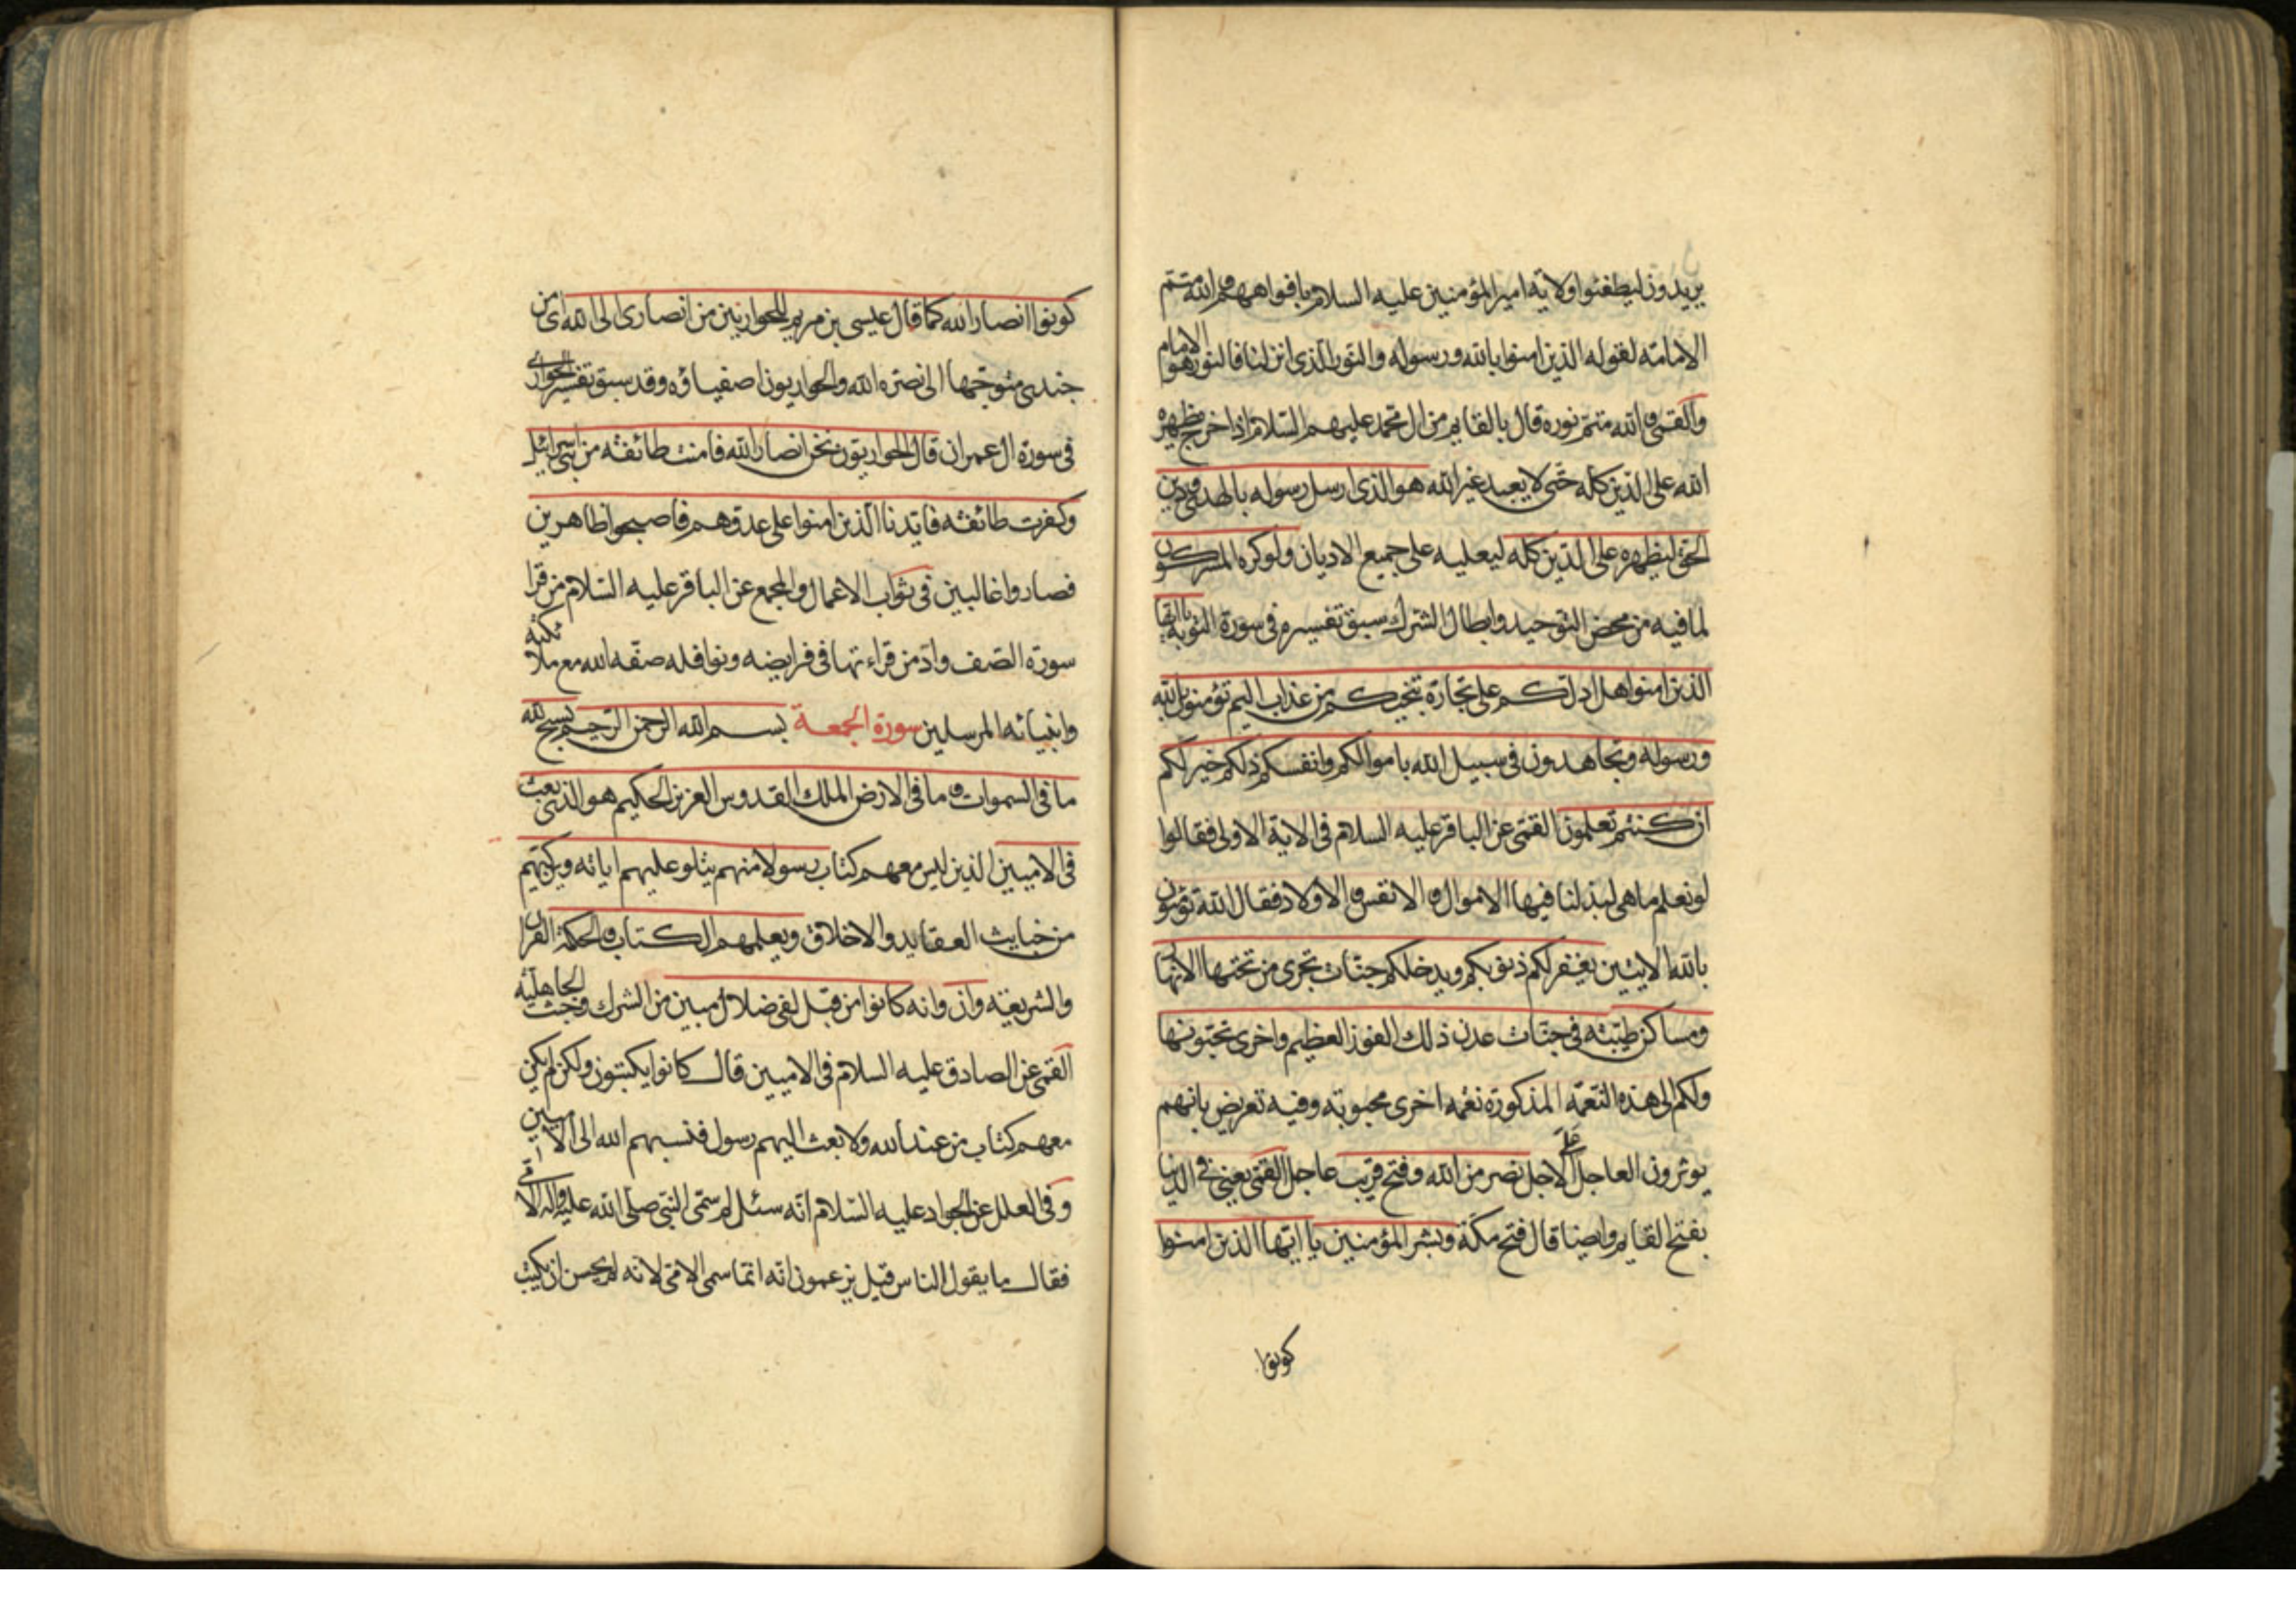 يريدون ليطفئوا ولاية امير المؤمنين عليه السلام بافواههم والله متم
الامامة لقوله الذين امنوا بالله ورسوله والنور الذي انزلنا فالنور هو الامام
والقمى والله متم نوره قال بالقايم من ال محمد عليهم السلام اذا خرج يظهره
الله على الدين كله حتى لا يعبد غير الله هو الذي ارسل رسوله بالهدى ودين
الحق ليظهره على الدين كله ليعليه على جميع الاديان ولو كره المشركون
لما فيه من محض التوحيد وابطال الشرك سبق تفسيره في سورة التوبة يا ايها
الذين امنوا هل ادلكم على تجارة تنجيكم من عذاب اليم تؤمنون بالله
ورسوله وتجاهدون في سبيل الله باموالكم وانفسكم ذلكم خير لكم
ان كنتم تعلمون القمى عن الباقر عليه السلام في الاية الاولى فقالوا
لو نعلم ما هي لبذلنا فيها الاموال والانفس والاولاد فقال الله تؤمنون
بالله الايتين يغفر لكم ذنوبكم ويدخلكم جنات تجري من تحتها الانهار
ومساكن طيبة في جنات عدن ذلك الفوز العظيم واخرى تحبونها
ولكم الى هذه النعمة المذكورة نعمة اخرى محبوبة وفيه تعريض بانهم
يوثرون العاجل على الاجل نصر من الله وفتح قريب عاجل القمى يعني في الدنيا
بفتح القايم وايضا قال فتح مكة وبشر المؤمنين يا ايها الذين امنوا
كونوا
كونوا انصار الله كما قال عيسى بن مريم للحواريين من انصاري الى الله اي من
جندى متوجها الى نصره الله والحواريون اصفياؤه وقد سبق تفسير الحوارى
في سورة ال عمران قال الحواريون نحن انصار الله فامنت طائفة من بني اسرائيل
وكفرت طائفة فايدنا الذين امنوا على عدوهم فاصبحوا ظاهرين
فصاروا غالبين في ثواب الاعمال والمجمع عن الباقر عليه السلام من قرا
سورة الصف وادمن قراءتها في فرايضه ونوافله صفه الله مع ملائكته
وانبيائه المرسلين سورة الجمعة بسم الله الرحمن الرحيم يسبح لله
ما في السموات وما في الارض الملك القدوس العزيز الحكيم هو الذي بعث
في الاميين الذين ليس معهم كتاب رسولا منهم يتلو عليهم اياته ويزكيهم
من خبايث العقايد والاخلاق ويعلمهم الكتاب والحكمة القران
والشريعة وان وانه كانوا من قبل لفي ضلال مبين من الشرك وخبث الجاهلية
القمى عن الصادق عليه السلام في الاميين قال كانوا يكتبون ولكن لم يكن
معهم كتاب من عند الله ولا بعث اليهم رسول فنسبهم الله الى الاميين
وفي العلل عن الجواد عليه السلام انه سئل لم سمى النبي صلى الله عليه واله الامى
فقال ما يقول الناس قيل يزعمون انه انما سمى الامى لانه لم يحسن ان يكتب